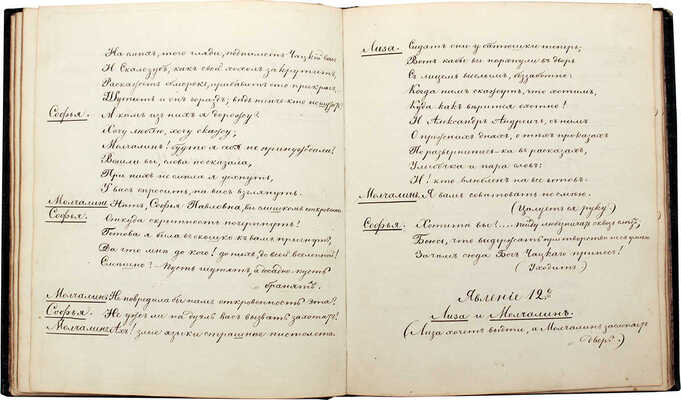 На смѣхъ, того гляди, подниметъ Чацкій васъ
И Скалозубъ, какъ свой хохолъ закрутитъ,
Разскажетъ обморокъ, прибавитъ сто прикрасъ.
Шутить и онъ гораздъ; вѣдь нынче кто не шутитъ?
Софья. А кѣмъ изъ нихъ я дорожу?
Хочу люблю, хочу скажу,
Молчалинъ! будто я себя не принуждала!
Вошли вы, слова не сказала,
При нихъ не смѣла я дохнуть,
У васъ спросить, на васъ взглянуть.
Молчалинъ Нѣтъ, Софья Павловна, вы слишкомъ откровенны
Софья. Откуда скрытность почерпнуть!
Готова я была въ окошко къ вамъ прыгнуть,
Да что мнѣ до кого! до нихъ, до всей вселенной!
Смѣшно? Пусть шутятъ, и досадно пусть
бранятъ.
Молчалинъ Не повредила бы намъ откровенность эта?
Софья. Неужели на дуэль васъ вызвать захотятъ?
Молчалинъ Ахъ! злые языки страшнѣе пистолета.
Лиза. Сидятъ они у батюшки теперь;
Вотъ кабы вы порхнули въ дверь
Съ лицемъ веселымъ, беззаботно:
Когда намъ скажутъ, что хотимъ,
Куда какъ вѣрится охотно!
И Александръ Андреичъ, съ нимъ
О прежнихъ дняхъ, о тѣхъ проказахъ
Поразвернитесь-ка въ разсказахъ,
Улыбочка и пара словъ;
И! кто влюбленъ на все готовъ.
Молчалинъ Я вамъ совѣтовать не смѣю.
(Цѣлуетъ ей руку.)
Софья. Хотите вы?... пойду любезничать сквозь слёзъ;
Боюсь, что выдержать притворства не съумѣю
Зачѣмъ сюда Богъ Чацкаго принесъ!
(Уходитъ.)
Явленіе 12е
Лиза и Молчалинъ.
(Лиза хочетъ выдти, а Молчалинъ
двери.)